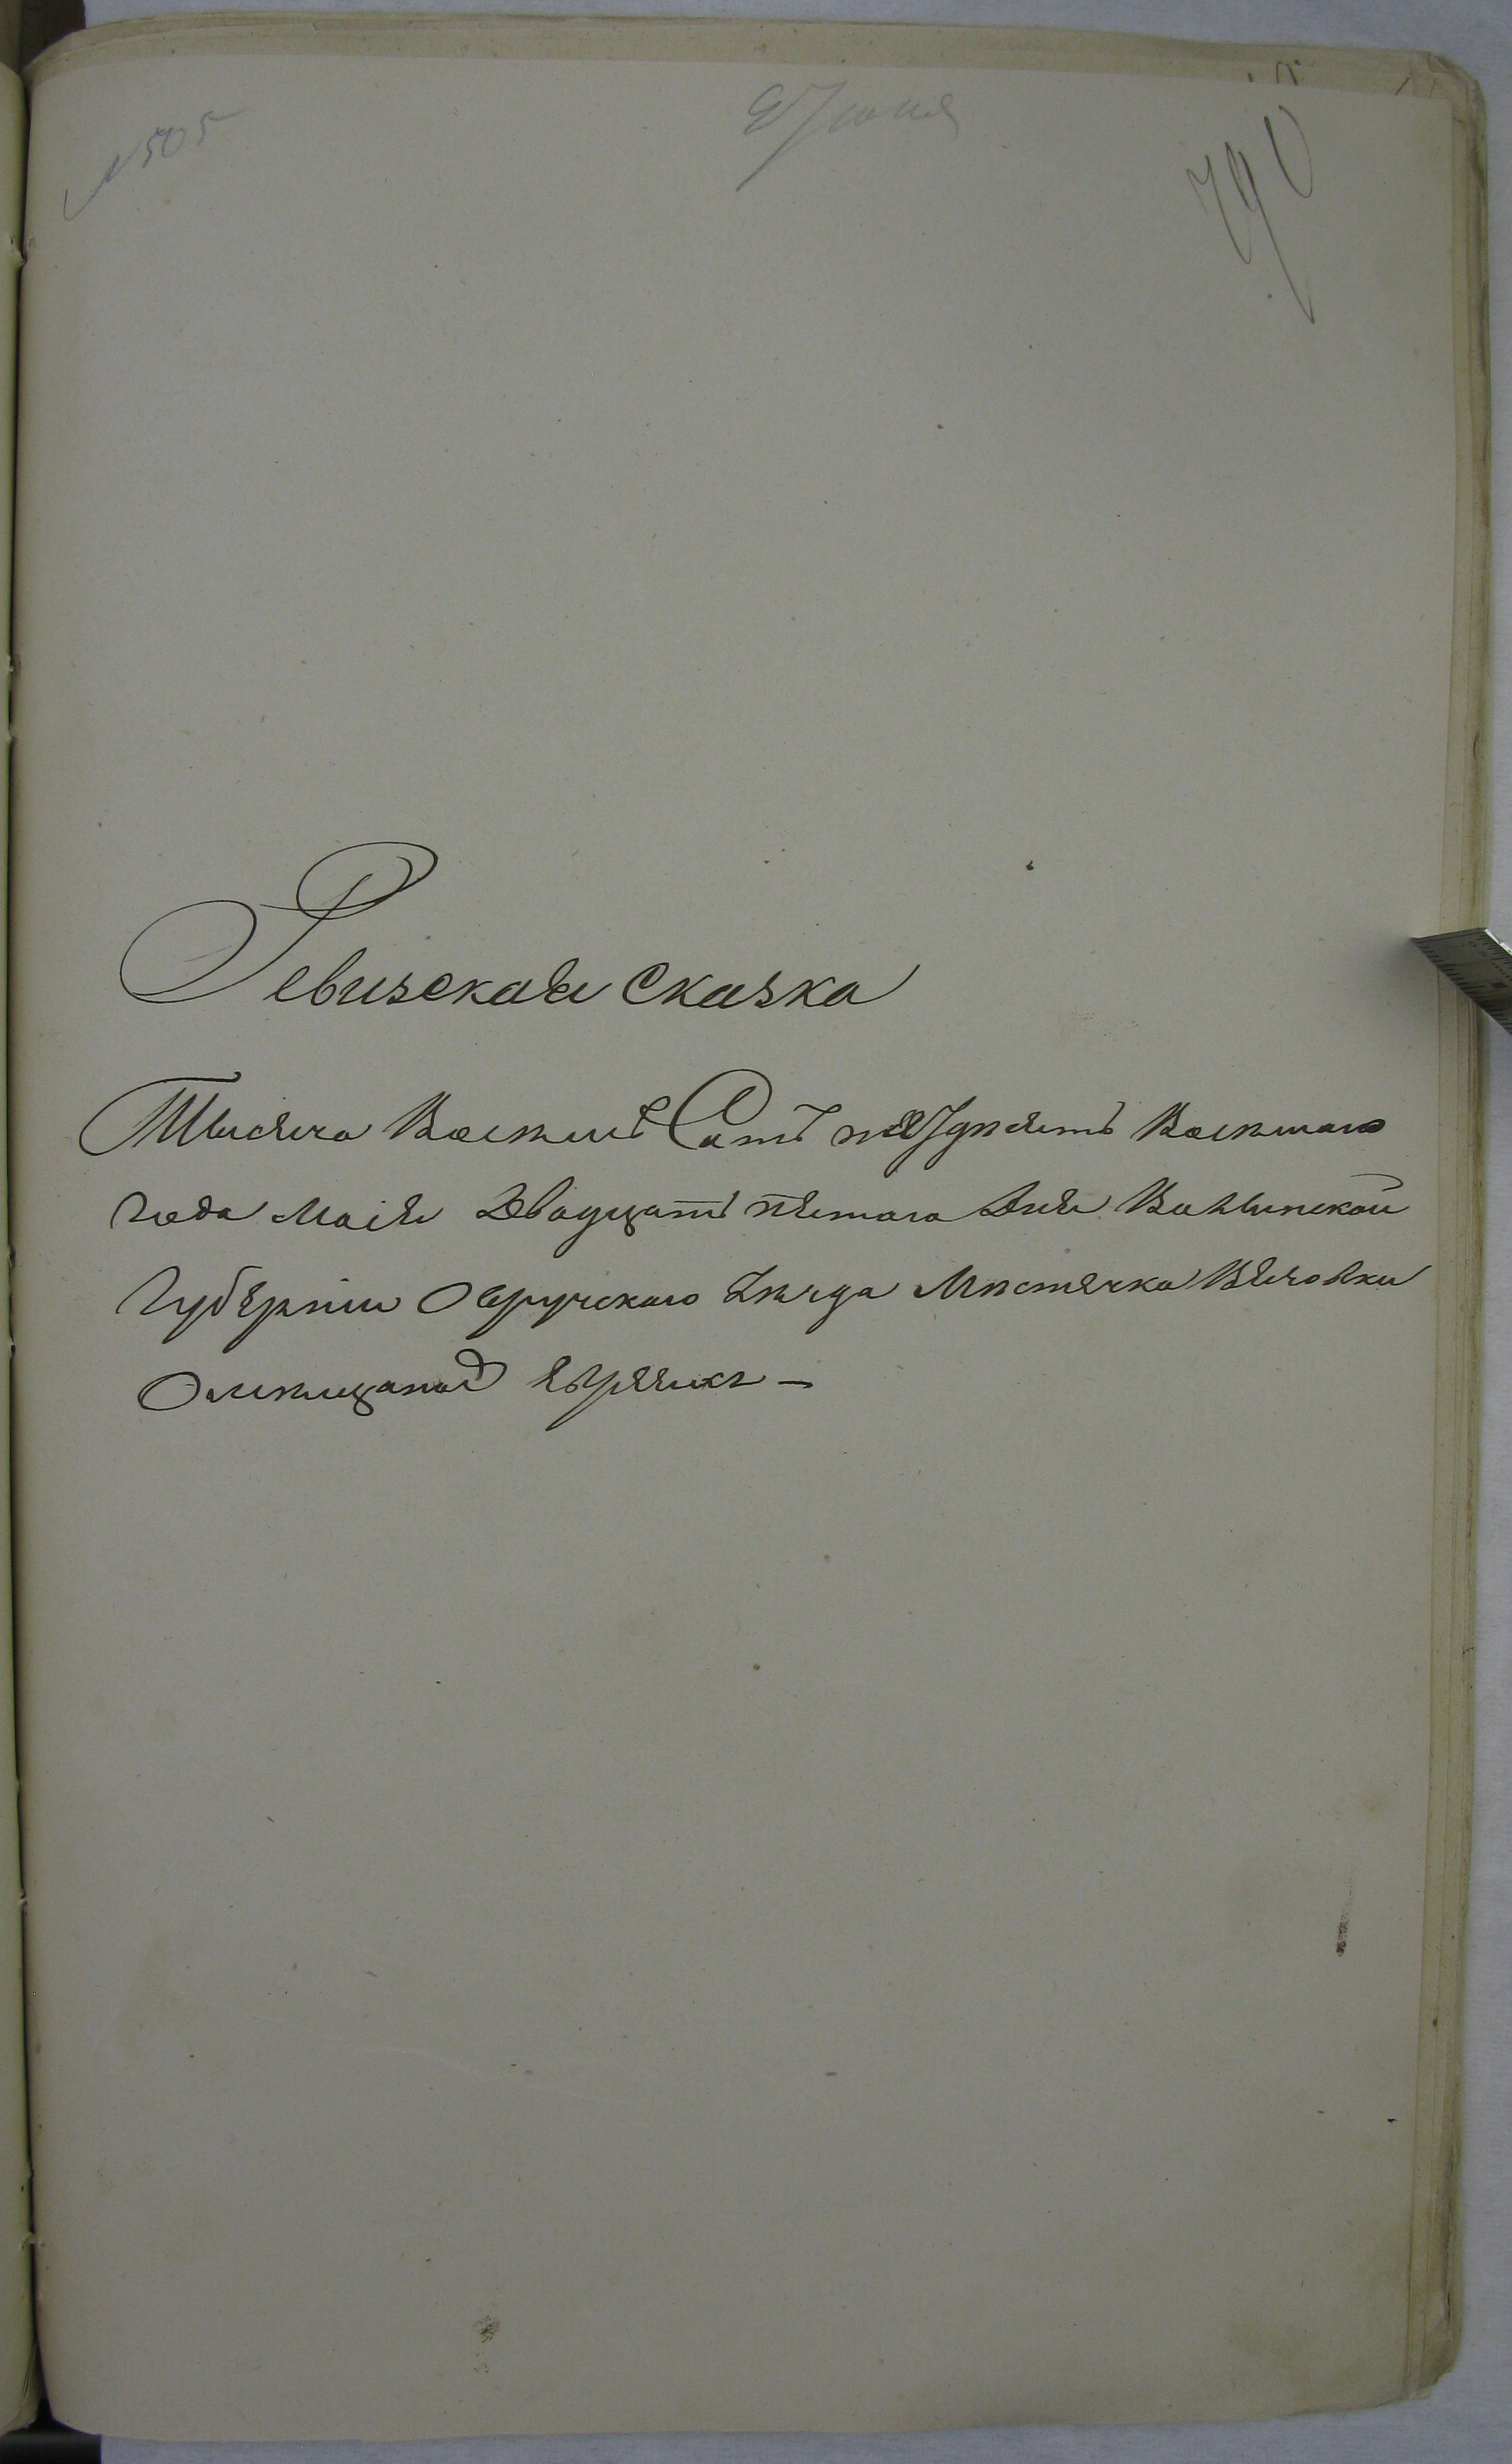 №505
9 Июня
790
Ревизская Сказка
Тысяча Восемь Сотъ пядедьсятъ Восьмаго
года Маія Двадцать пятаго дня Волынской
Губерніи Овручскаго Уезда Местечка Вѣледники
О мещанах Евреяхъ —